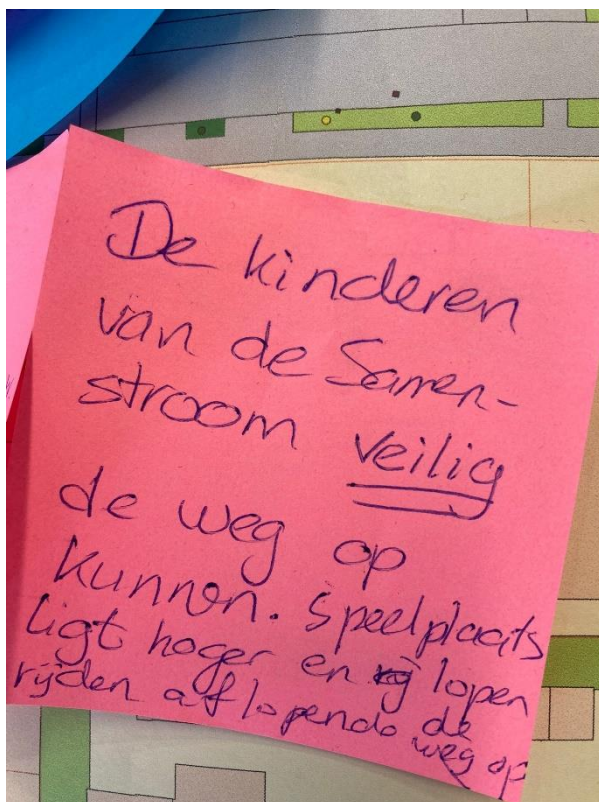 De kinderen
van de Samen-
stroom veilig
de weg op
kunnen. Speelplaats
ligt hoger en lopen
rijden aflopende de
weg op